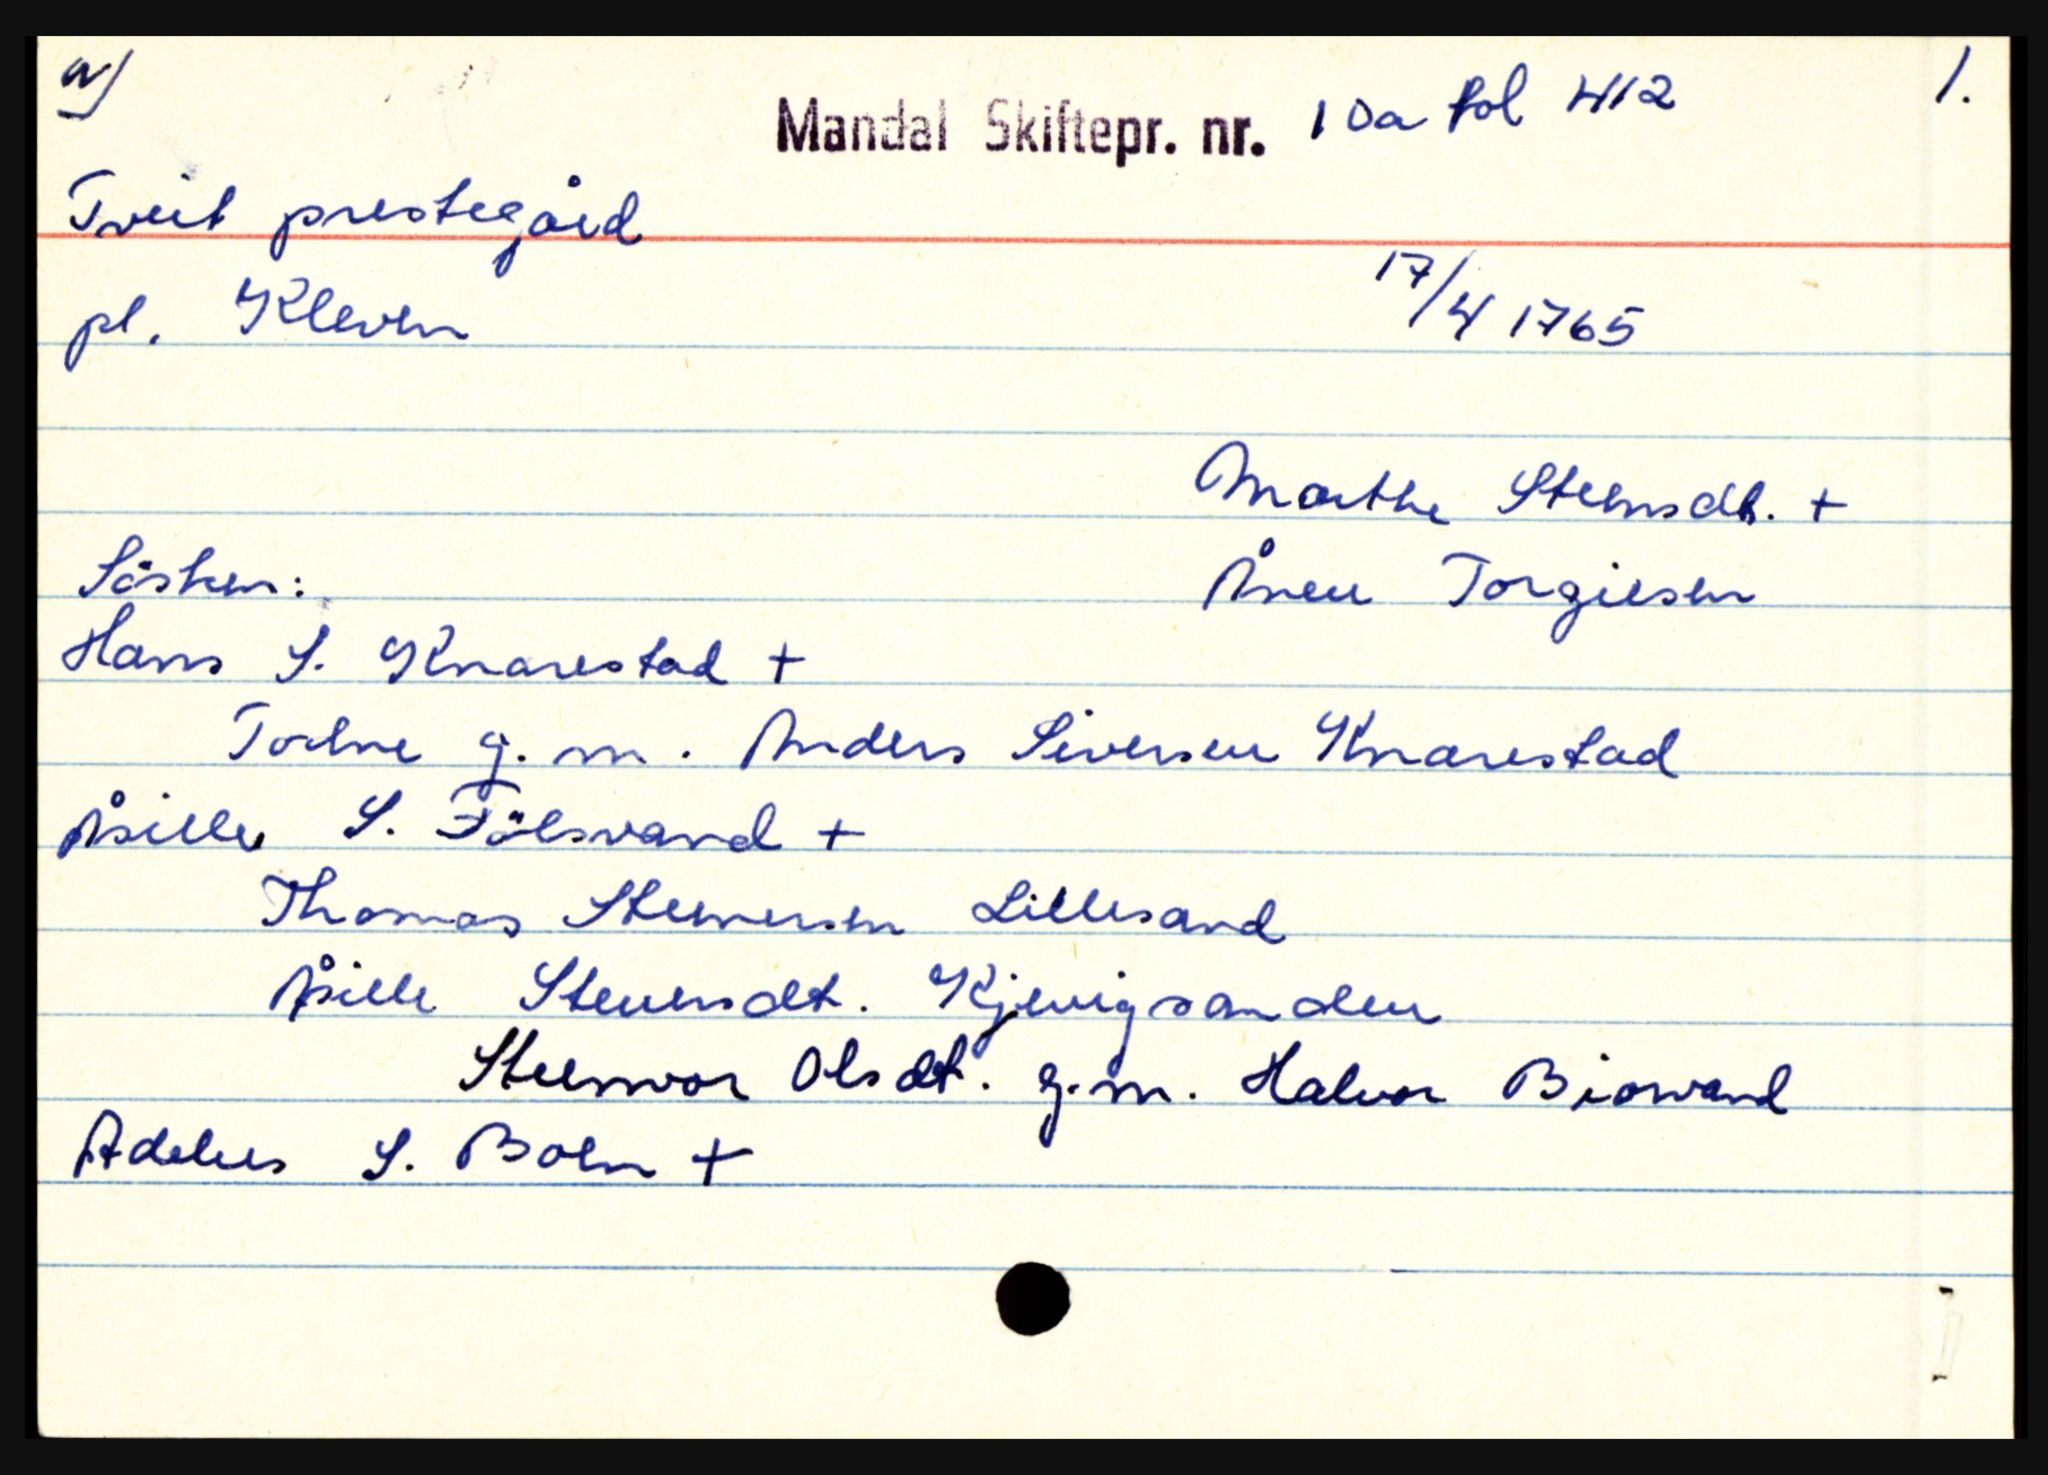 a) 1.
Mandal Skiftepr. nr. 10a fol 412
Tveit prestegård
pl. Kleven 17/4 1765
Marthe Steensdt. +
Sösken: Ånen Torgiesen
Hans S. Knarestad +
Todne g. m. Anders Siversen Knarestad
Åsille S. Fölsvand +
Thomas Steenersen Lillesand
Åsille Steensdt. Kjevigsanden
Steenvor Olsdt. g. m. Halvor Biorvand
S. Boen +